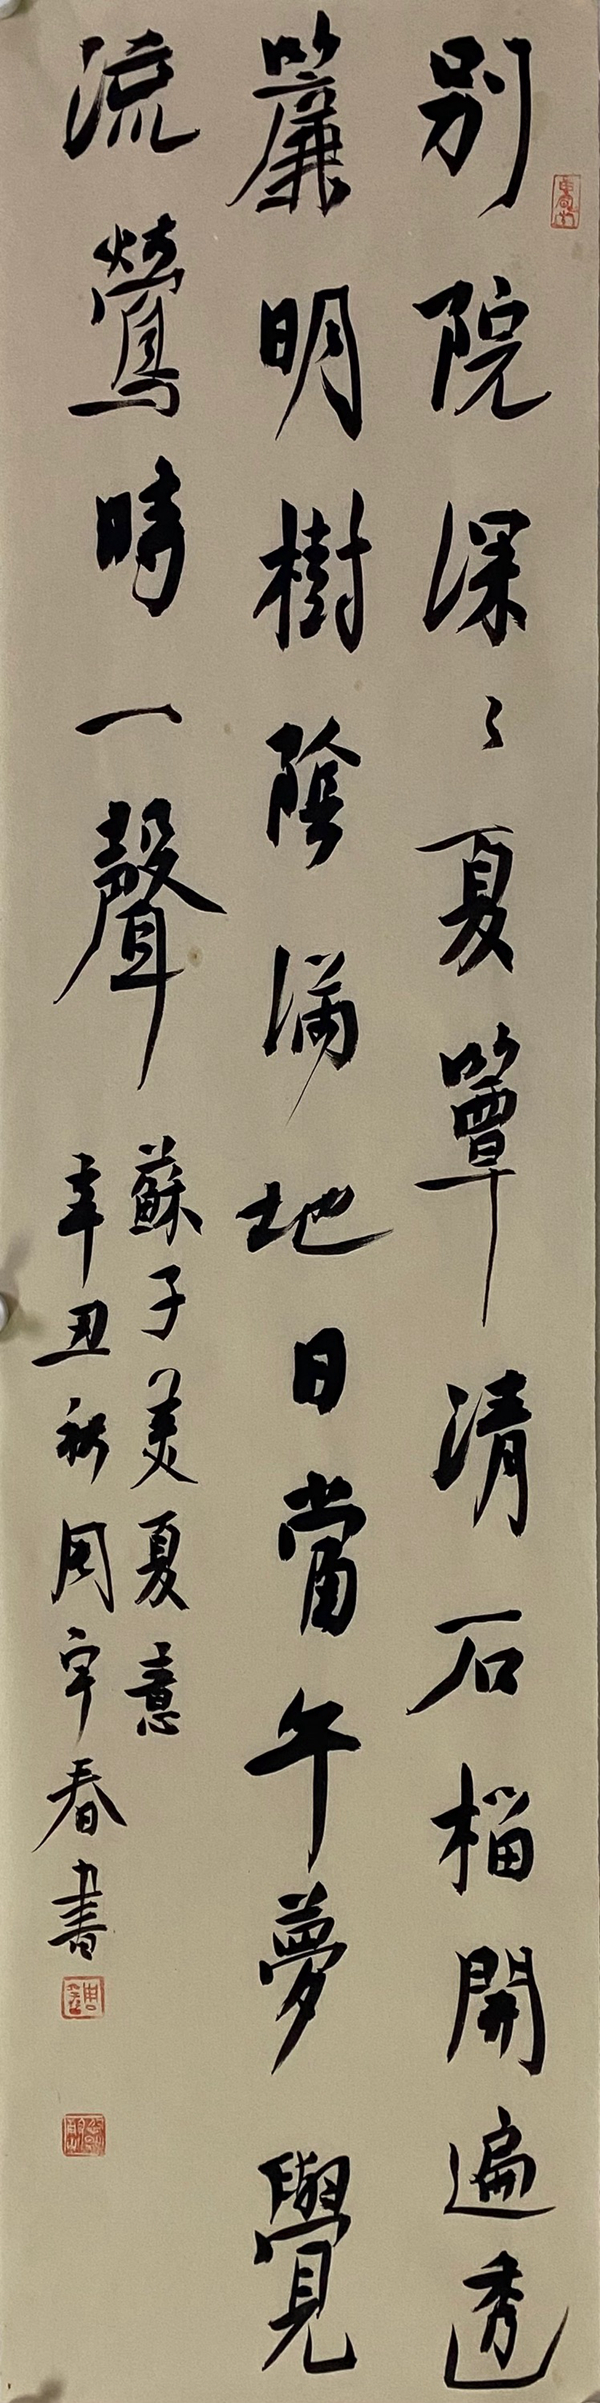 別院深〻夏簟清石榴開遍透
簾明樹陰滿地日當午夢覺
流鶯時一聲
蘇子美夏意
辛丑秋周宇春書